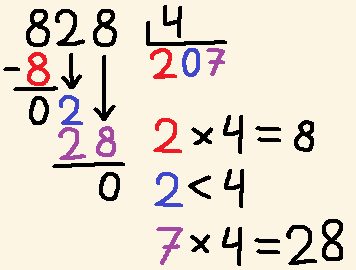 828 4
-8 207
02
28
0
2×4=8
2<4
7×4=28